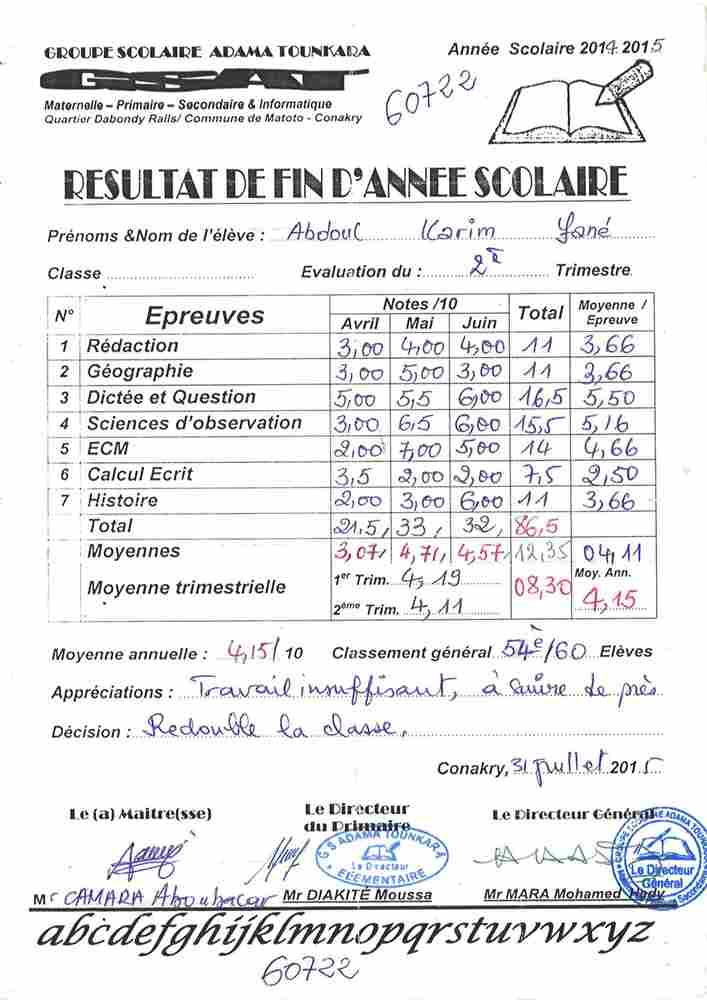 GROUPE SCOLAIRE ADAMA TOUNKARA
Année Scolaire 2014 2015
GSAT
Maternelle – Primaire – Secondaire & Informatique
Quartier Dabondy Rails/ Commune de Matoto - Conakry
60722
RESULTAT DE FIN D'ANNEE SCOLAIRE
Prénoms &Nom de l'élève : Abdoul Karim
Classe Evaluation du : 2è Trimestre
N° Epreuves Notes /10 Total Moyenne / Epreuve
Avril Mai Juin
1 Rédaction 3,00 4,00 4,00 11 3,66
2 Géographie 3,00 5,00 3,00 11 3,66
3 Dictée et Question 5,00 5,5 6,00 16,5 5,50
4 Sciences d'observation 3,00 6,5 6,00 15,5 5,16
5 ECM 2,00 7,00 5,00 14 4,66
6 Calcul Ecrit 3,5 2,00 2,00 7,5 2,50
7 Histoire 2,00 3,00 6,00 11 3,66
Total 21,5, 33, 32, 86,5
Moyennes 3,07, 4,71, 4,57, 12,35 04,11
Moyenne trimestrielle 1er Trim. 4,19 08,30 Moy. Ann.
2ème Trim. 4,11 4,15
Moyenne annuelle : 4,15/ 10 Classement général 54è/60 Elèves
Appréciations : Travail insuffisant, à suivre de près
Décision : Redouble la classe.
Conakry, 31 juillet 2015
Le (a) Maitre(sse) Le Directeur du Primaire Le Directeur Général
G S ADAMA TOUNKARA
Le Directeur
ELEMENTAIRE
GROUPE SCOLAIRE ADAMA TOUNKARA
Le Directeur
Général
Mr CAMARA Aboubacar Mr DIAKITÉ Moussa Mr MARA Mohamed Hady
abcdefghijklmnopqrstuvwxyz
60722